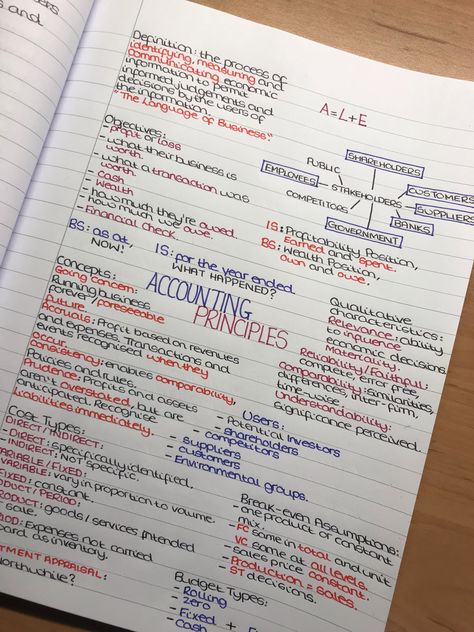 and
Definition: the process of
identifying, measuring and
communicating economic
information to permit
informed judgements and
decisions by the users of
the information.
"The Language of Business."
A=L+E
Ojectives:
- profit or loss
- what their business is
worth.
- what a transaction was
worth.
- Cash
- Wealth
- how much they're owed.
- how much we owe.
- Financial check.
SHAREHOLDERS
PUBLIC
EMPLOYEES
STAKEHOLDERS
CUSTOMERS
SUPPLIERS
COMPETITORS
BANKS
GOVERNMENT
IS: Profitability Position,
Earned and spent.
BS: Wealth Position,
own and owe.
BS: as at,
NOW!
IS: for the year ended.
WHAT HAPPENED?
ACCOUNTING
PRINCIPLES
Concepts:
Going Concern:
Running business
forever / foreseeable
future.
Accruals: Profit based on revenues
and expenses. Transactions and
events recognised when they
occur.
Consistency: enables comparability,
Policies and rules.
Prudence: Profits and assets
aren't overstated, but are
anticipated. Recognise
liabilities immediately.
Qualitative
characteristics:
Relevance: ability
to influence
economic decisions.
Materiality.
Reliability/Faithful:
complete, error free,
comparability: similarities,
differences, inter-firm,
time-wise
Understandability:
significance perceived.
Users:
- potential Investors
- Shareholders
- competitors
- Suppliers
- customers
- Environmental groups.
Cost Types:
DIRECT / INDIRECT:
- DIRECT: specifically identified.
- INDIRECT: not specific.
VARIABLE / FIXED:
FIXED: constant.
VARIABLE: vary in proportion to volume.
PRODUCT / PERIOD:
PRODUCT: goods / services intended
sale.
PERIOD: Expenses not carried
board as inventory.
APPRAISAL:
worthwhile?
Break-even Assumptions:
- one product or constant
mix.
- FC same in total and unit
VC same at all levels.
- sales price constant.
- Production = Sales.
- ST decisions.
Budget Types:
- Rolling
- Zero
- Fixed +
- Cash